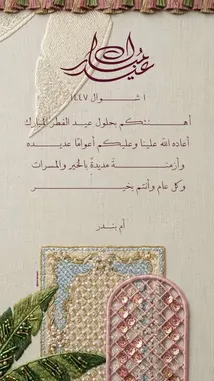 عيد مبارك
١ شوال ١٤٤٧
أهنئكم بحلول عيد الفطر المبارك
أعاده الله علينا وعليكم أعوامًا عديده
وأزمنة مديدة بالخير والمسرات
وكل عام وأنتم بخير
أم بندر